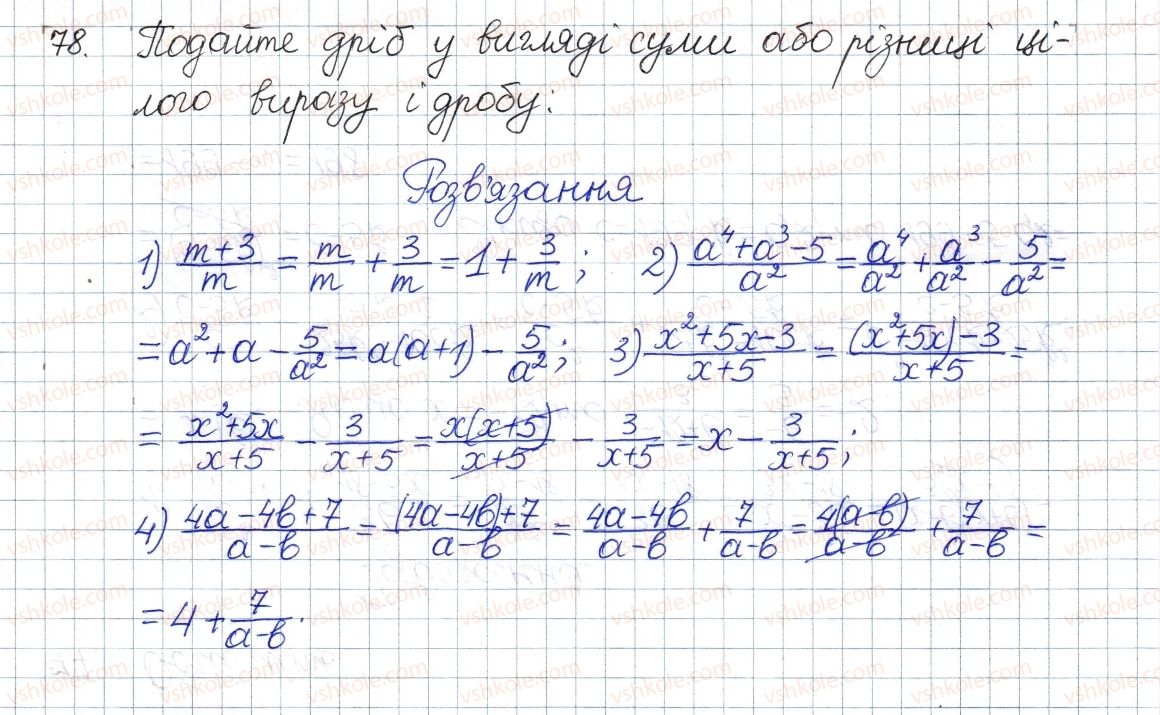 78. Подайте дріб у вигляді суми або різниці ці-
лого виразу і дробу:
Розв'язання
1) \frac{m+3}{m} = \frac{m}{m} + \frac{3}{m} = 1 + \frac{3}{m}; 2) \frac{a^4+a^3-5}{a^2} = \frac{a^4}{a^2} + \frac{a^3}{a^2} - \frac{5}{a^2} =
= a^2 + a - \frac{5}{a^2} = a(a+1) - \frac{5}{a^2}; 3) \frac{x^2+5x-3}{x+5} = \frac{(x^2+5x)-3}{x+5} =
= \frac{x^2+5x}{x+5} - \frac{3}{x+5} = \frac{x(x+5)}{x+5} - \frac{3}{x+5} = x - \frac{3}{x+5};
4) \frac{4a-4b+7}{a-b} = \frac{(4a-4b)+7}{a-b} = \frac{4a-4b}{a-b} + \frac{7}{a-b} = \frac{4(a-b)}{a-b} + \frac{7}{a-b} =
= 4 + \frac{7}{a-b}.